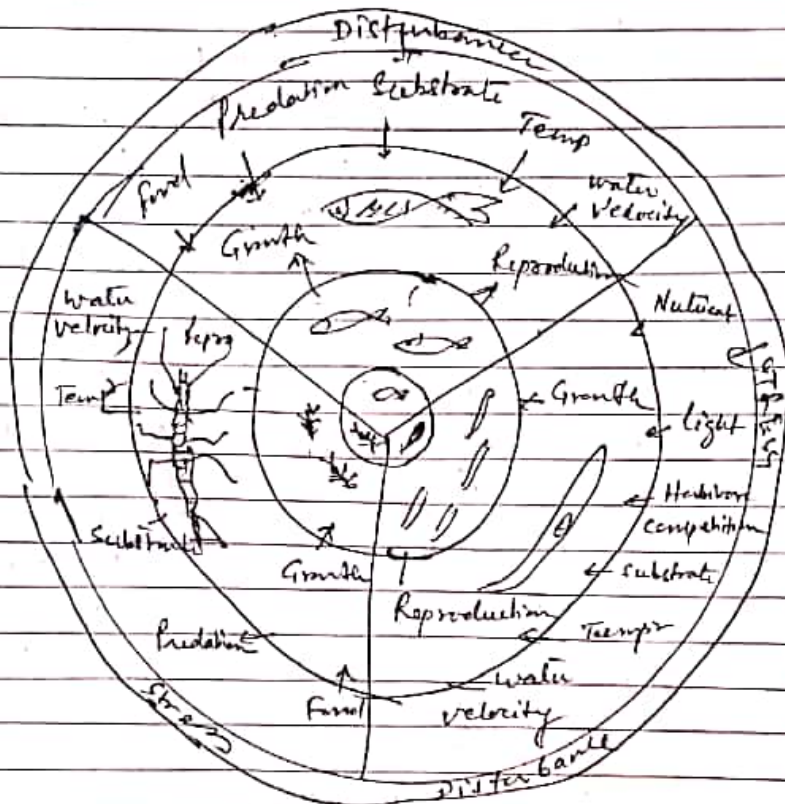 Disturbance
Predation Substrate
Temp
Food
water
velocity
Growth
Reproduction
water
velocity
Repro
Nutrient
Temp
Growth
light
STRESS
Herbivore
competition
Substrate
substrate
Growth
Reproduction
Temp
Predation
water
velocity
Food
Stress
Disturbance